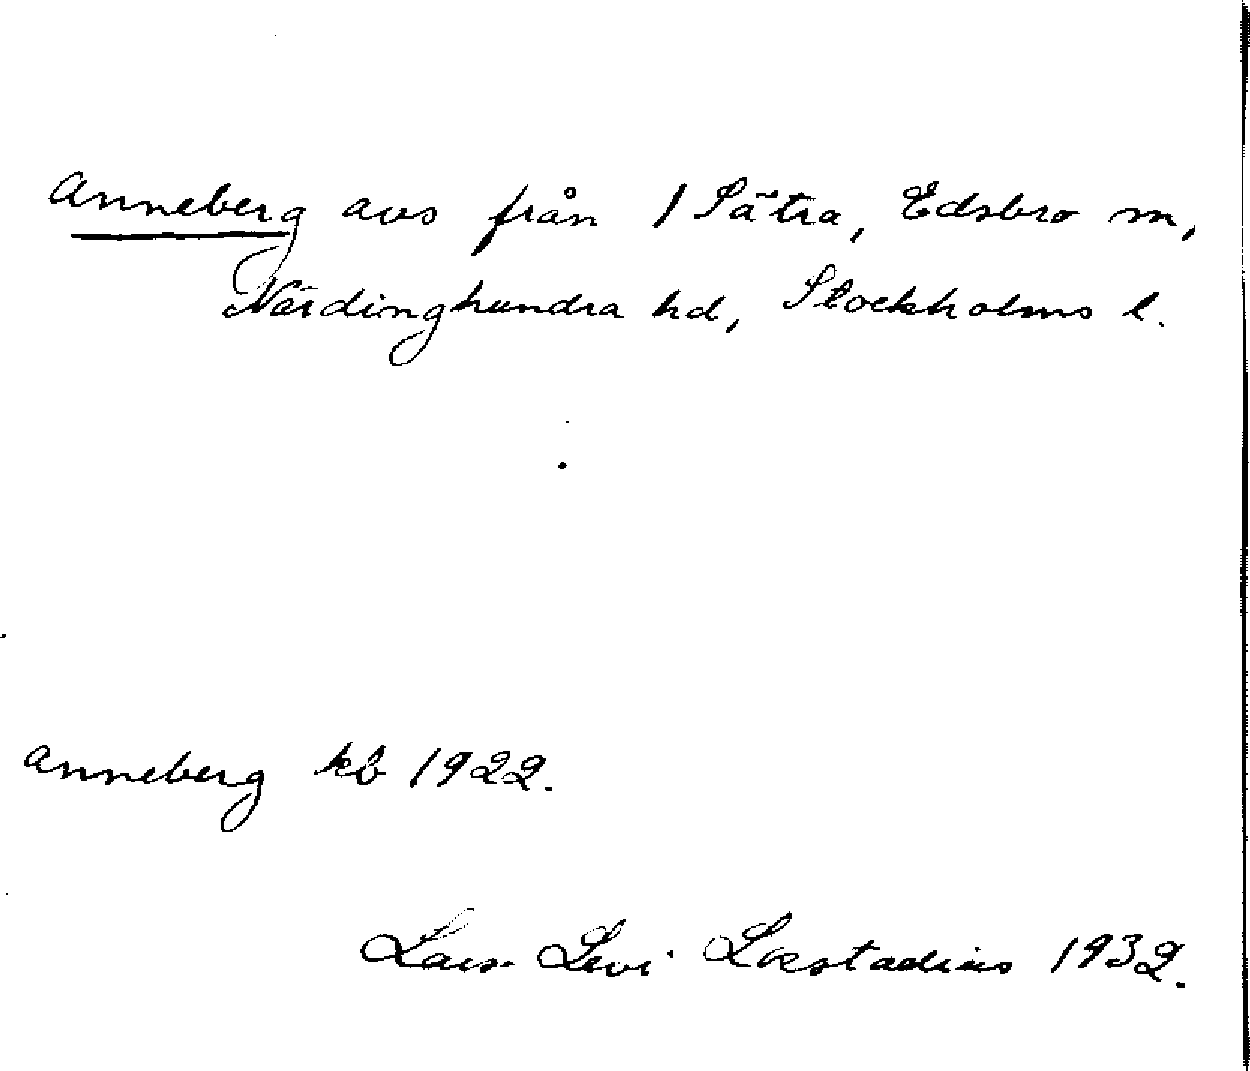 Anneberg avs från 1 Sätra, Edsbro sn,
Närdinghundra hd, Stockholms l.
Anneberg kb 1922.
Lars Levi Læstadius 1932.